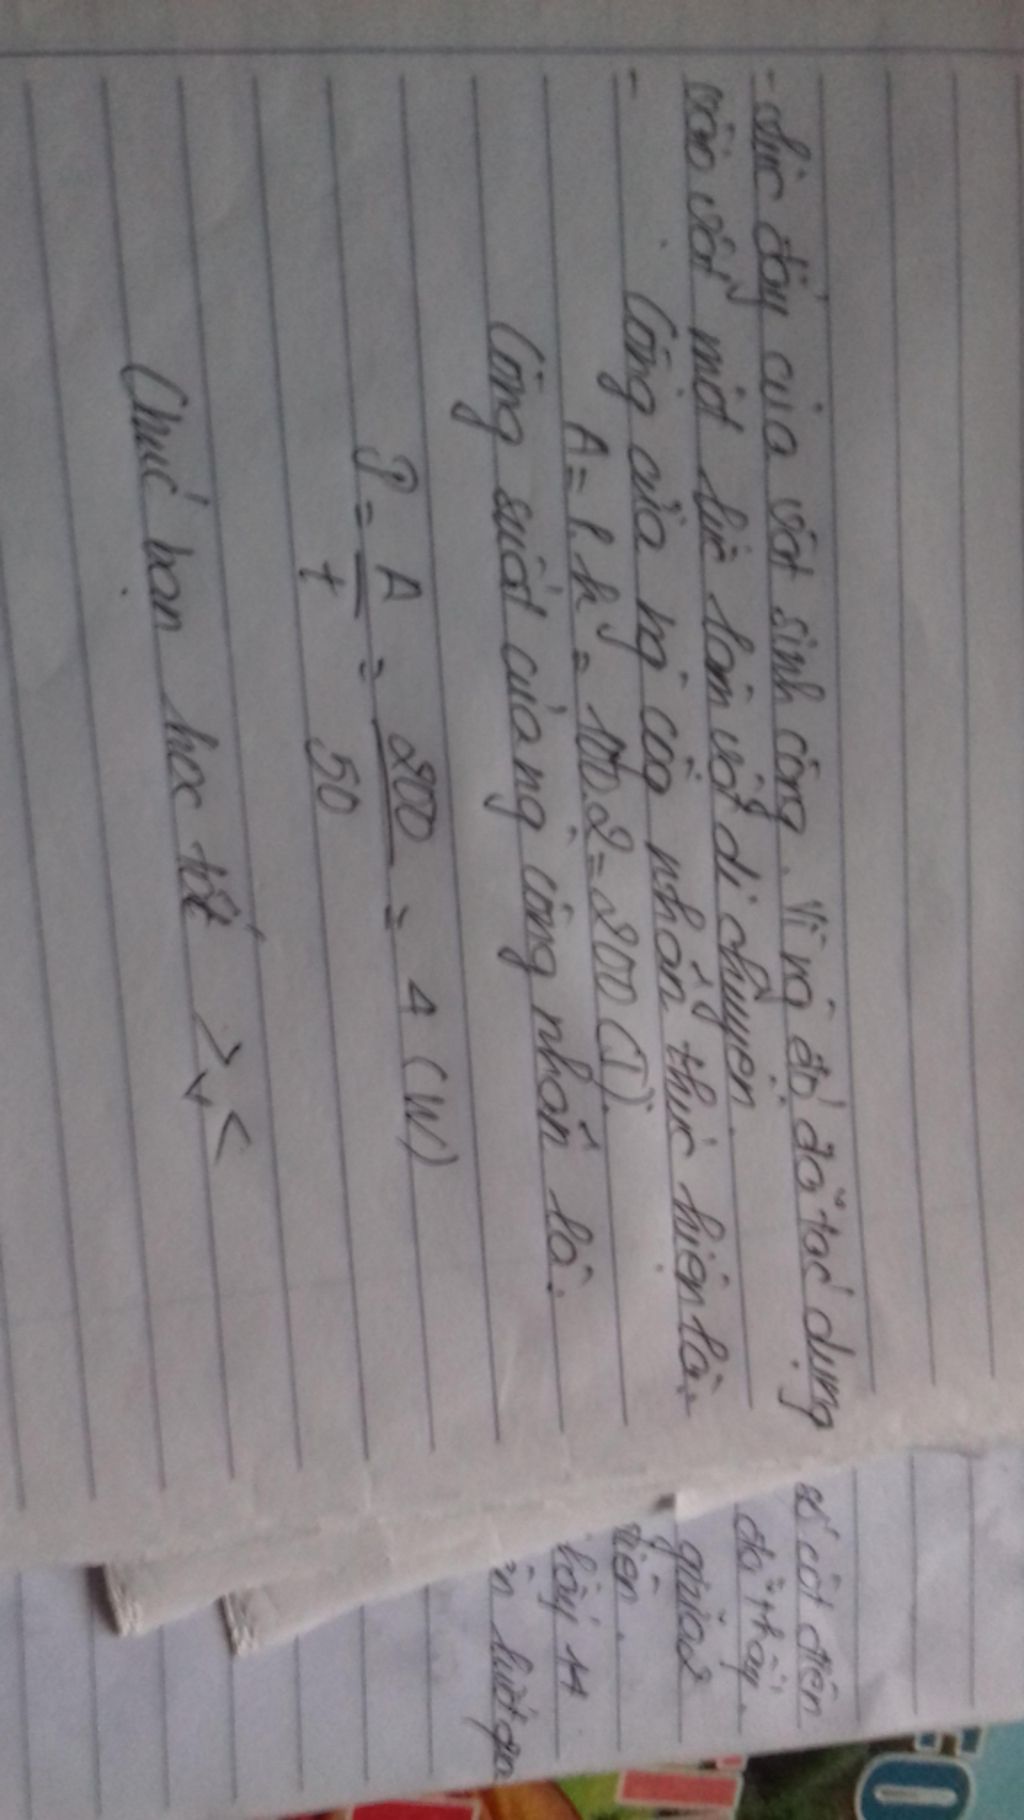 - Lực đẩy của vật sinh công. Vì ng đó đã tác dụng
vào vật một lực làm vật di chuyển.
- Công của ng công nhân thực hiện là:
A = P.h = 100.2 = 200 (J).
Công suất của ng công nhân là:
P = A/t = 200/50 = 4 (W)
Chúc bạn học tốt >.<
số cột điện
đã thấy.
giữa 2
điện.
thấy 11
lượt qua